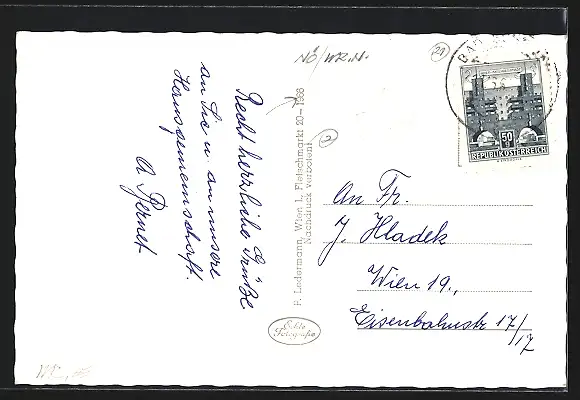 NÖ/WR.N.
Recht herzliche Grüße
an Sie u. an unsere
Hausgemeinschaft.
A. Pernet
F. Ledermann, Wien I., Fleischmarkt 20–1966
Nachdruck verboten!
Echte
Fotografie
BAD
50
g
REPUBLIK ÖSTERREICH
An Fr.
J. Hladek
Wien 19.,
Eisenbahnstr 17/
17